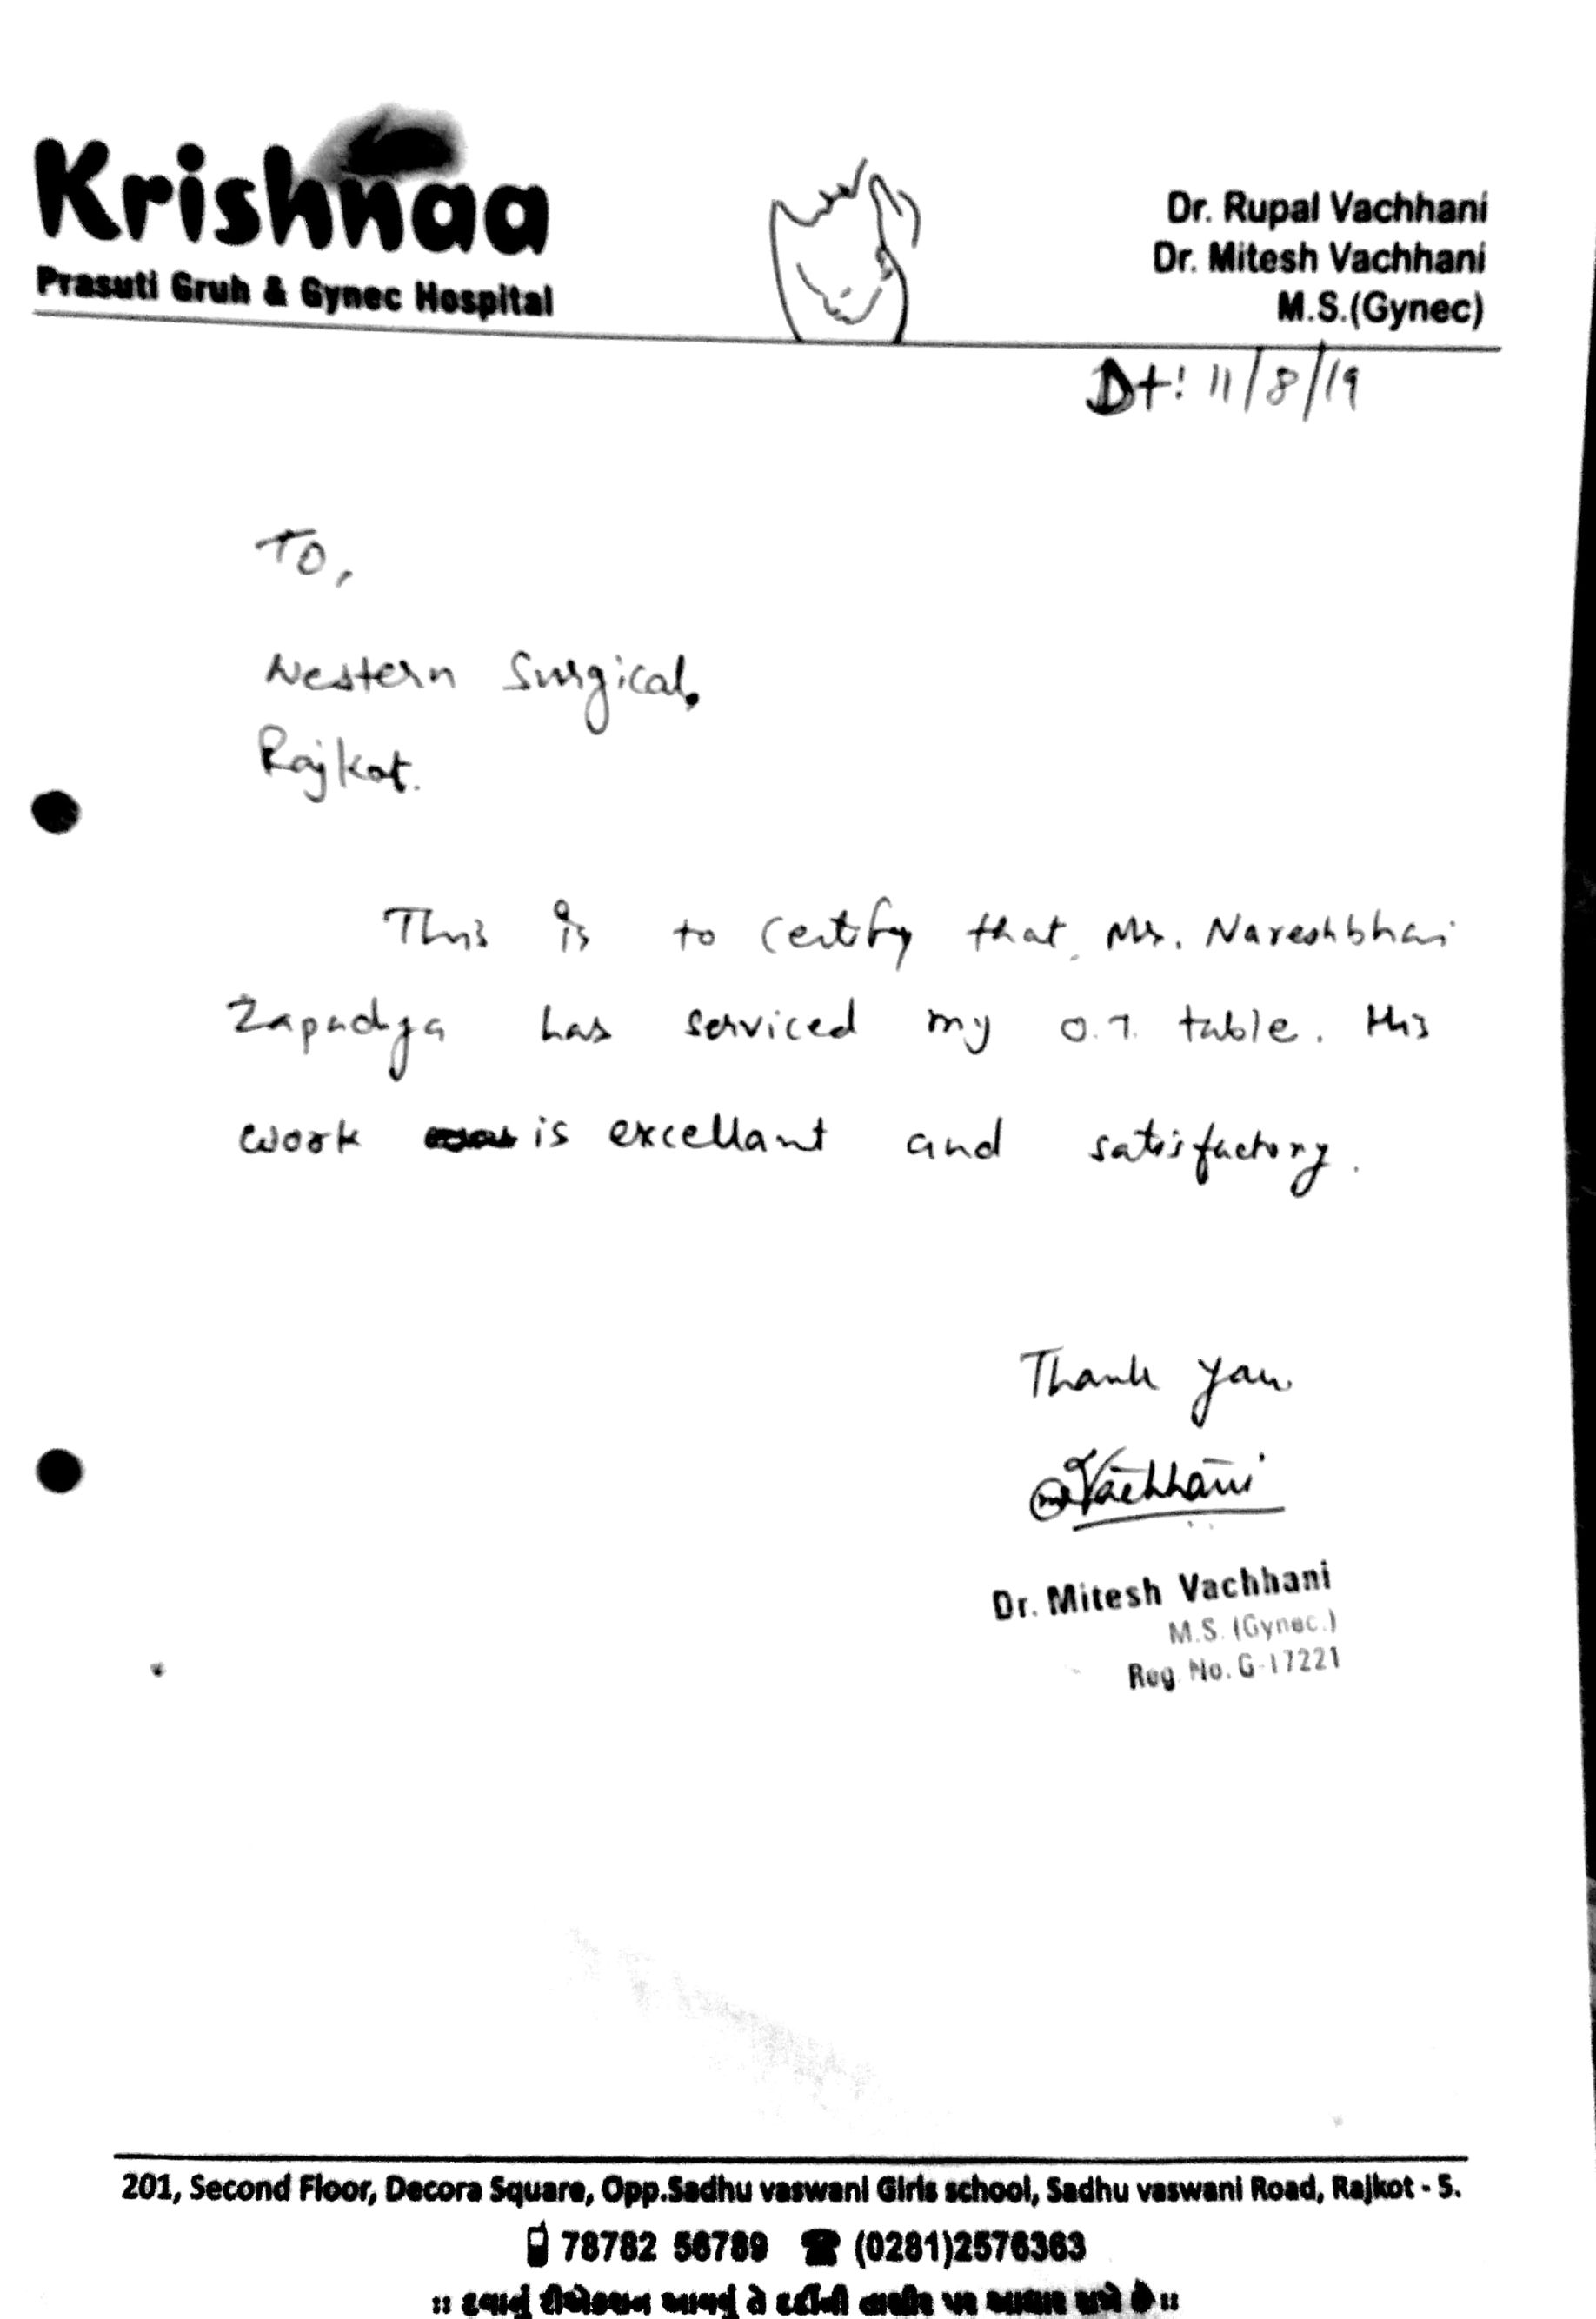 Krishnaa
Prasuti Gruh & Gynec Hospital
Dr. Rupal Vachhani
Dr. Mitesh Vachhani
M.S.(Gynec)
Dt: 11/8/19
To,
Western Surgical,
Rajkot.
This is to certify that Mr. Nareshbhai
Zapadiya has serviced my O.T. table. His
work is excellant and satisfactory.
Thank you
Vachhani
Dr. Mitesh Vachhani
M.S. (Gynec.)
Reg. No. G-17221
201, Second Floor, Decora Square, Opp.Sadhu vaswani Girls school, Sadhu vaswani Road, Rajkot - 5.
78782 56789 (0281)2576363
:: દવાનું રીએકશન આવવું તે દર્દીની તાસીર પર આધાર રાખે છે ::